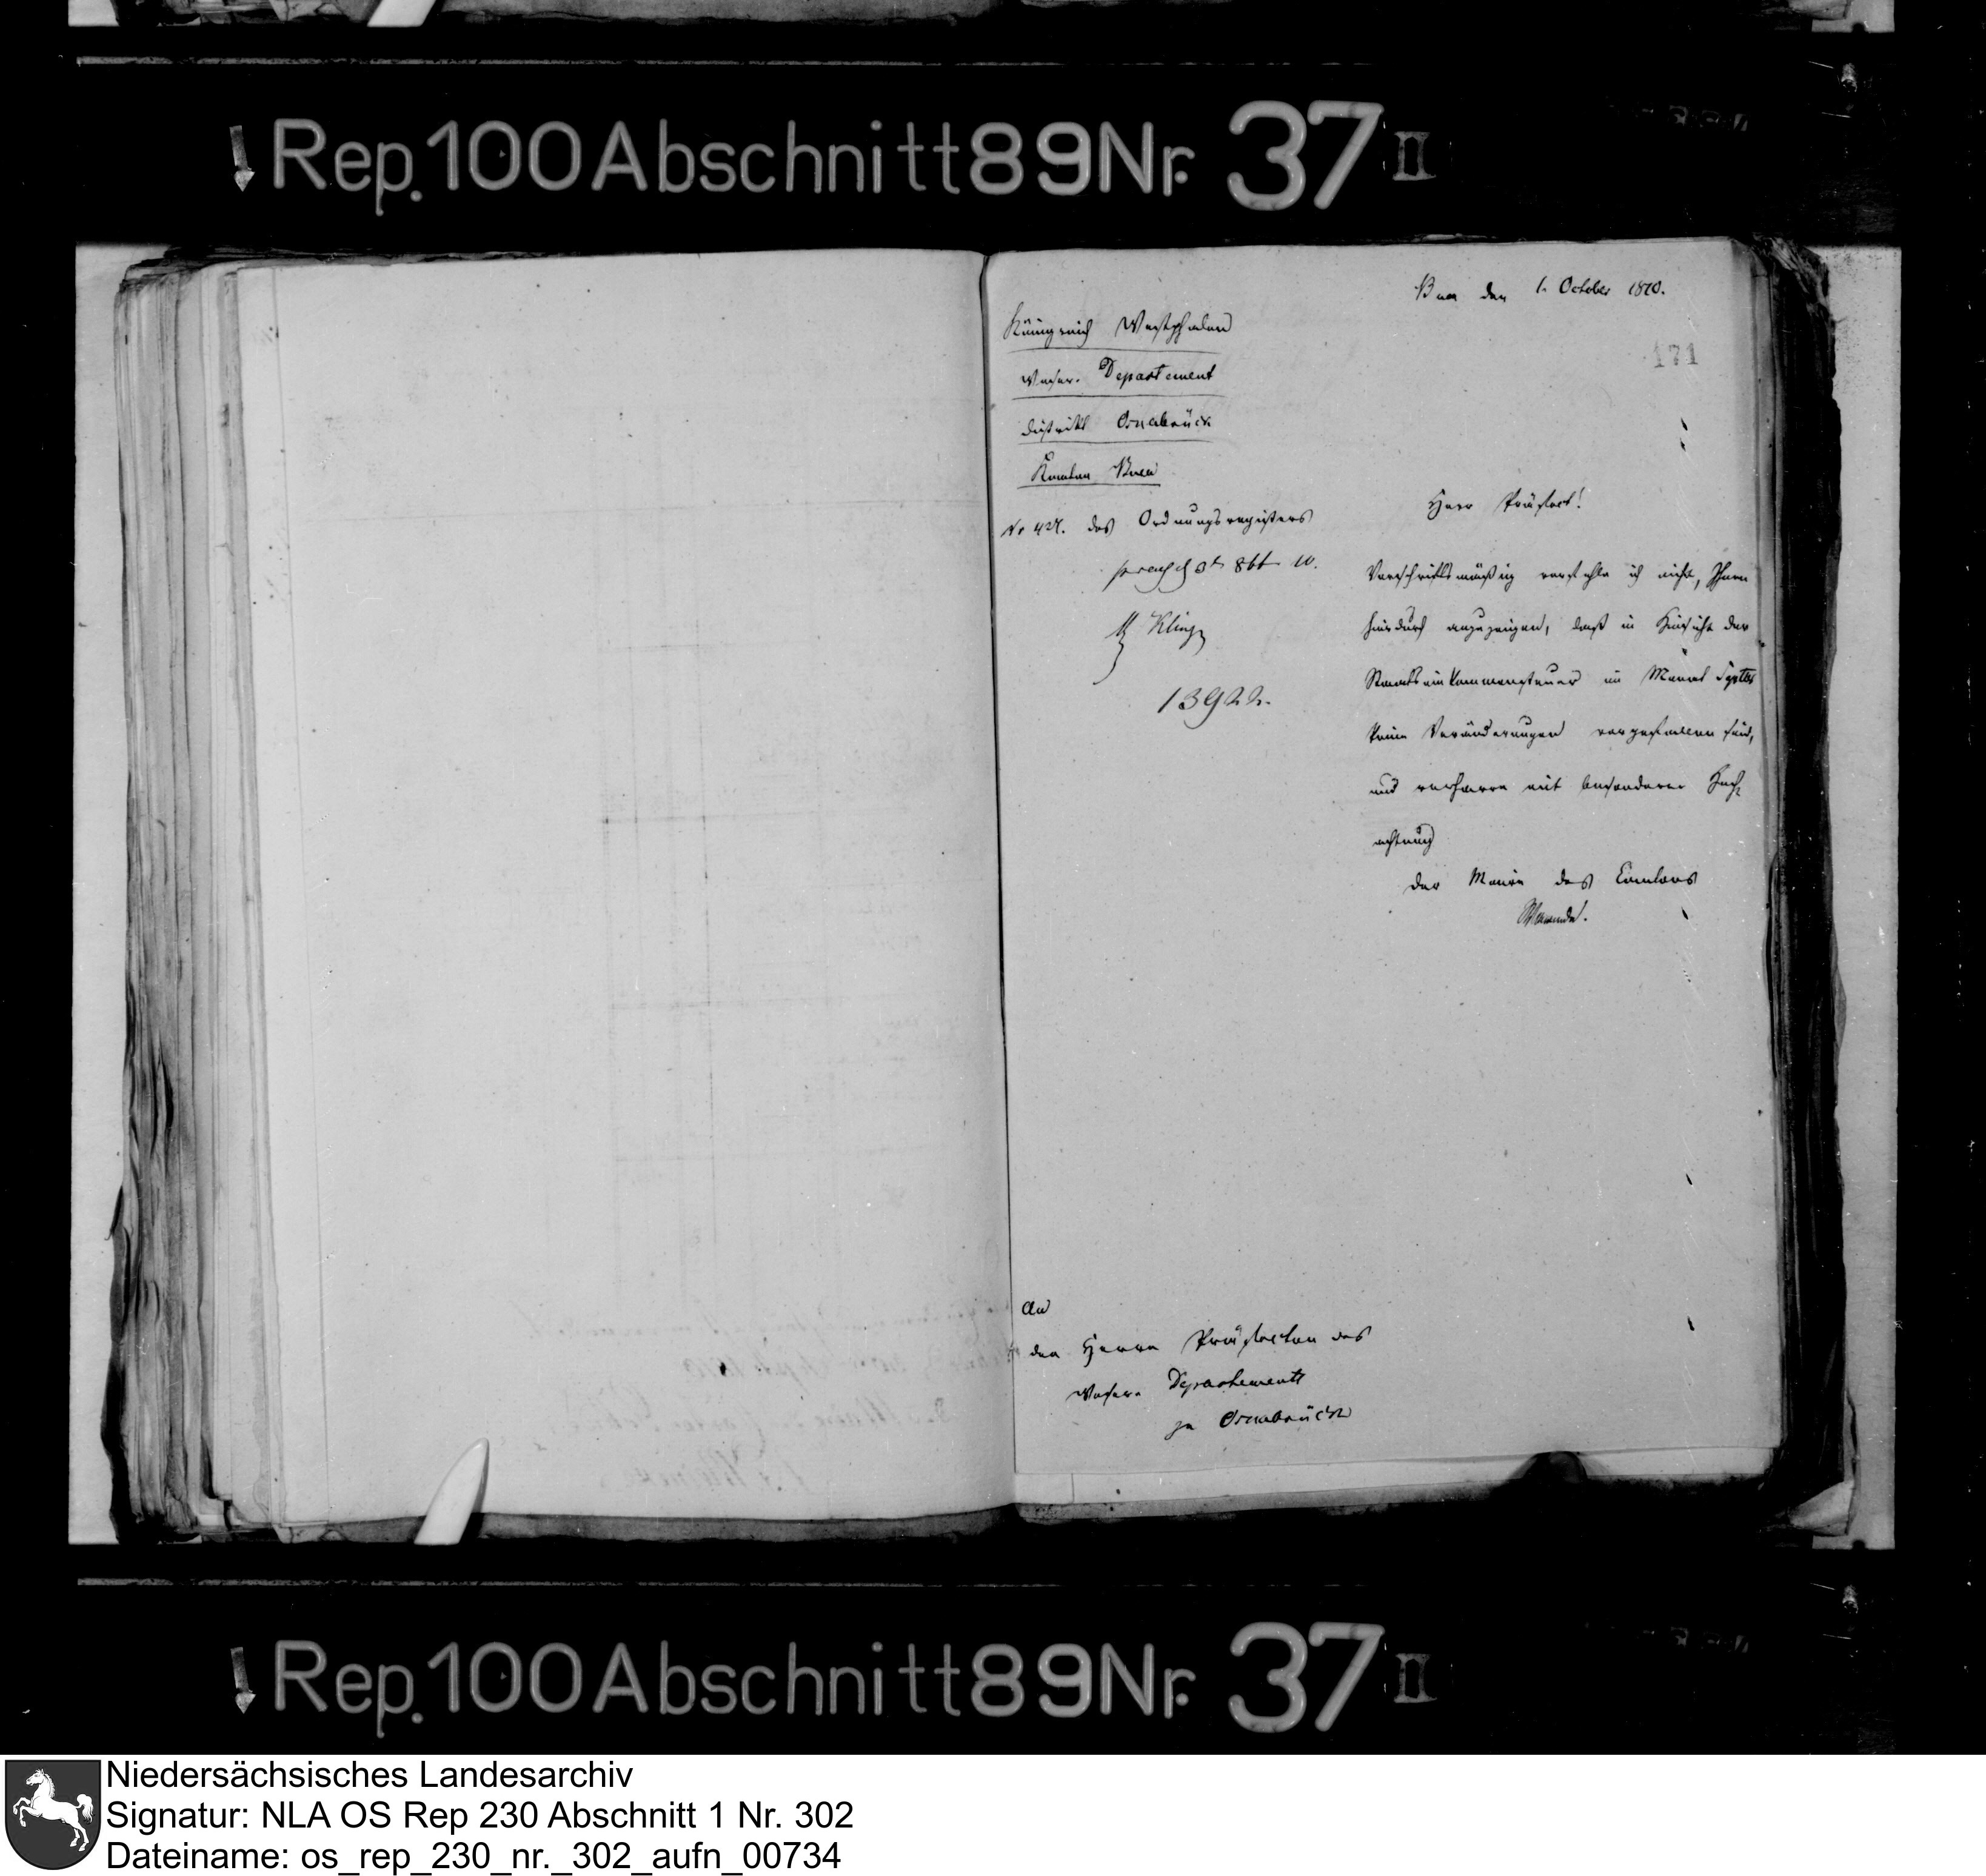 Rep. 100 Abschnitt 89 Nr. 37 II
Buer den 1. October 1810.
171
Königreich Westphalen
Weser-Departement
District Osnabrück
Kanton Buer
No 427. des Ordnungsregisters
Herr Präfect!
13922.
Vorschriftsmäßig verfehle ich nicht, Ihnen
hierdurch anzuzeigen, daß in Hinsicht der
Staatseinkommensteuer im Monat Septbr
keine Veränderungen vorgefallen sind,
und verharre mit besonderer Hoch-
achtung
der Maire des Cantons
An
den Herrn Präfecten des
Weser-Departements
zu Osnabrück
Rep. 100 Abschnitt 89 Nr. 37 II
Niedersächsisches Landesarchiv
Signatur: NLA OS Rep 230 Abschnitt 1 Nr. 302
Dateiname: os_rep_230_nr._302_aufn_00734